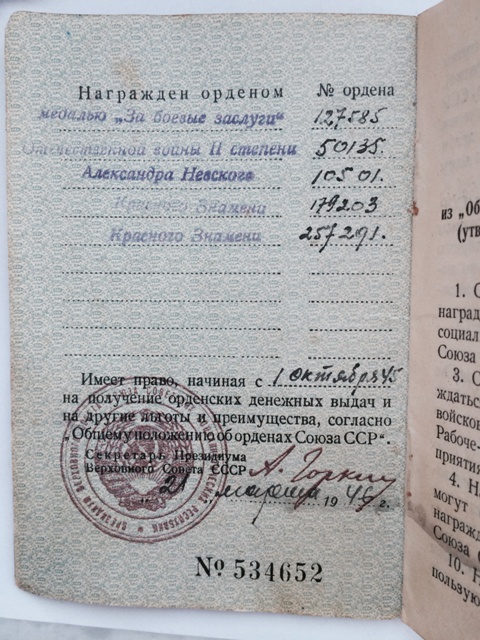 Награжден орденом № ордена
медалью „За боевые заслуги“ 127585
Отечественной войны II степени 50135.
Александра Невского 10501.
Красного Знамени 179203
Красного Знамени 257291.
Имеет право, начиная с 1 октября 45
на получение орденских денежных выдач и
на другие льготы и преимущества, согласно
„Общему положению об орденах Союза ССР“.
Секретарь Президиума
Верховного Совета СССР А. Горкин
марта 194 г.
№ 534652
из „Об
(утв
1. О
наград
социал
Союза
3. О
ждатьс
войсков
Рабоче-
приятия
4. На
могут
награжд
Союза (
10. Н
пользую